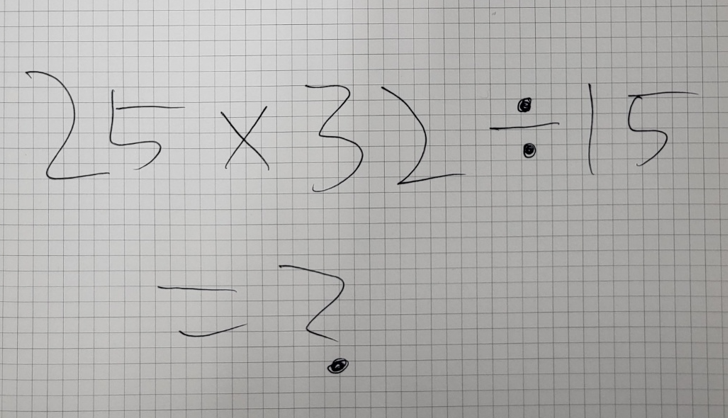 25 × 32 ÷ 15
= ?